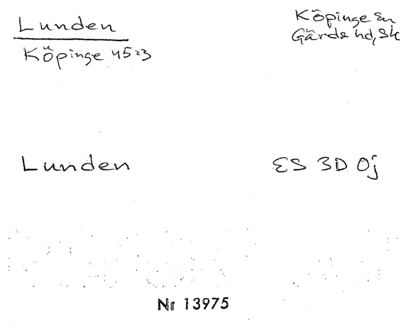 Lunden
Köpinge 45:3
Köpinge sn
Gärds hd, Sk
Lunden
ES 3D 0j
Nr 13975